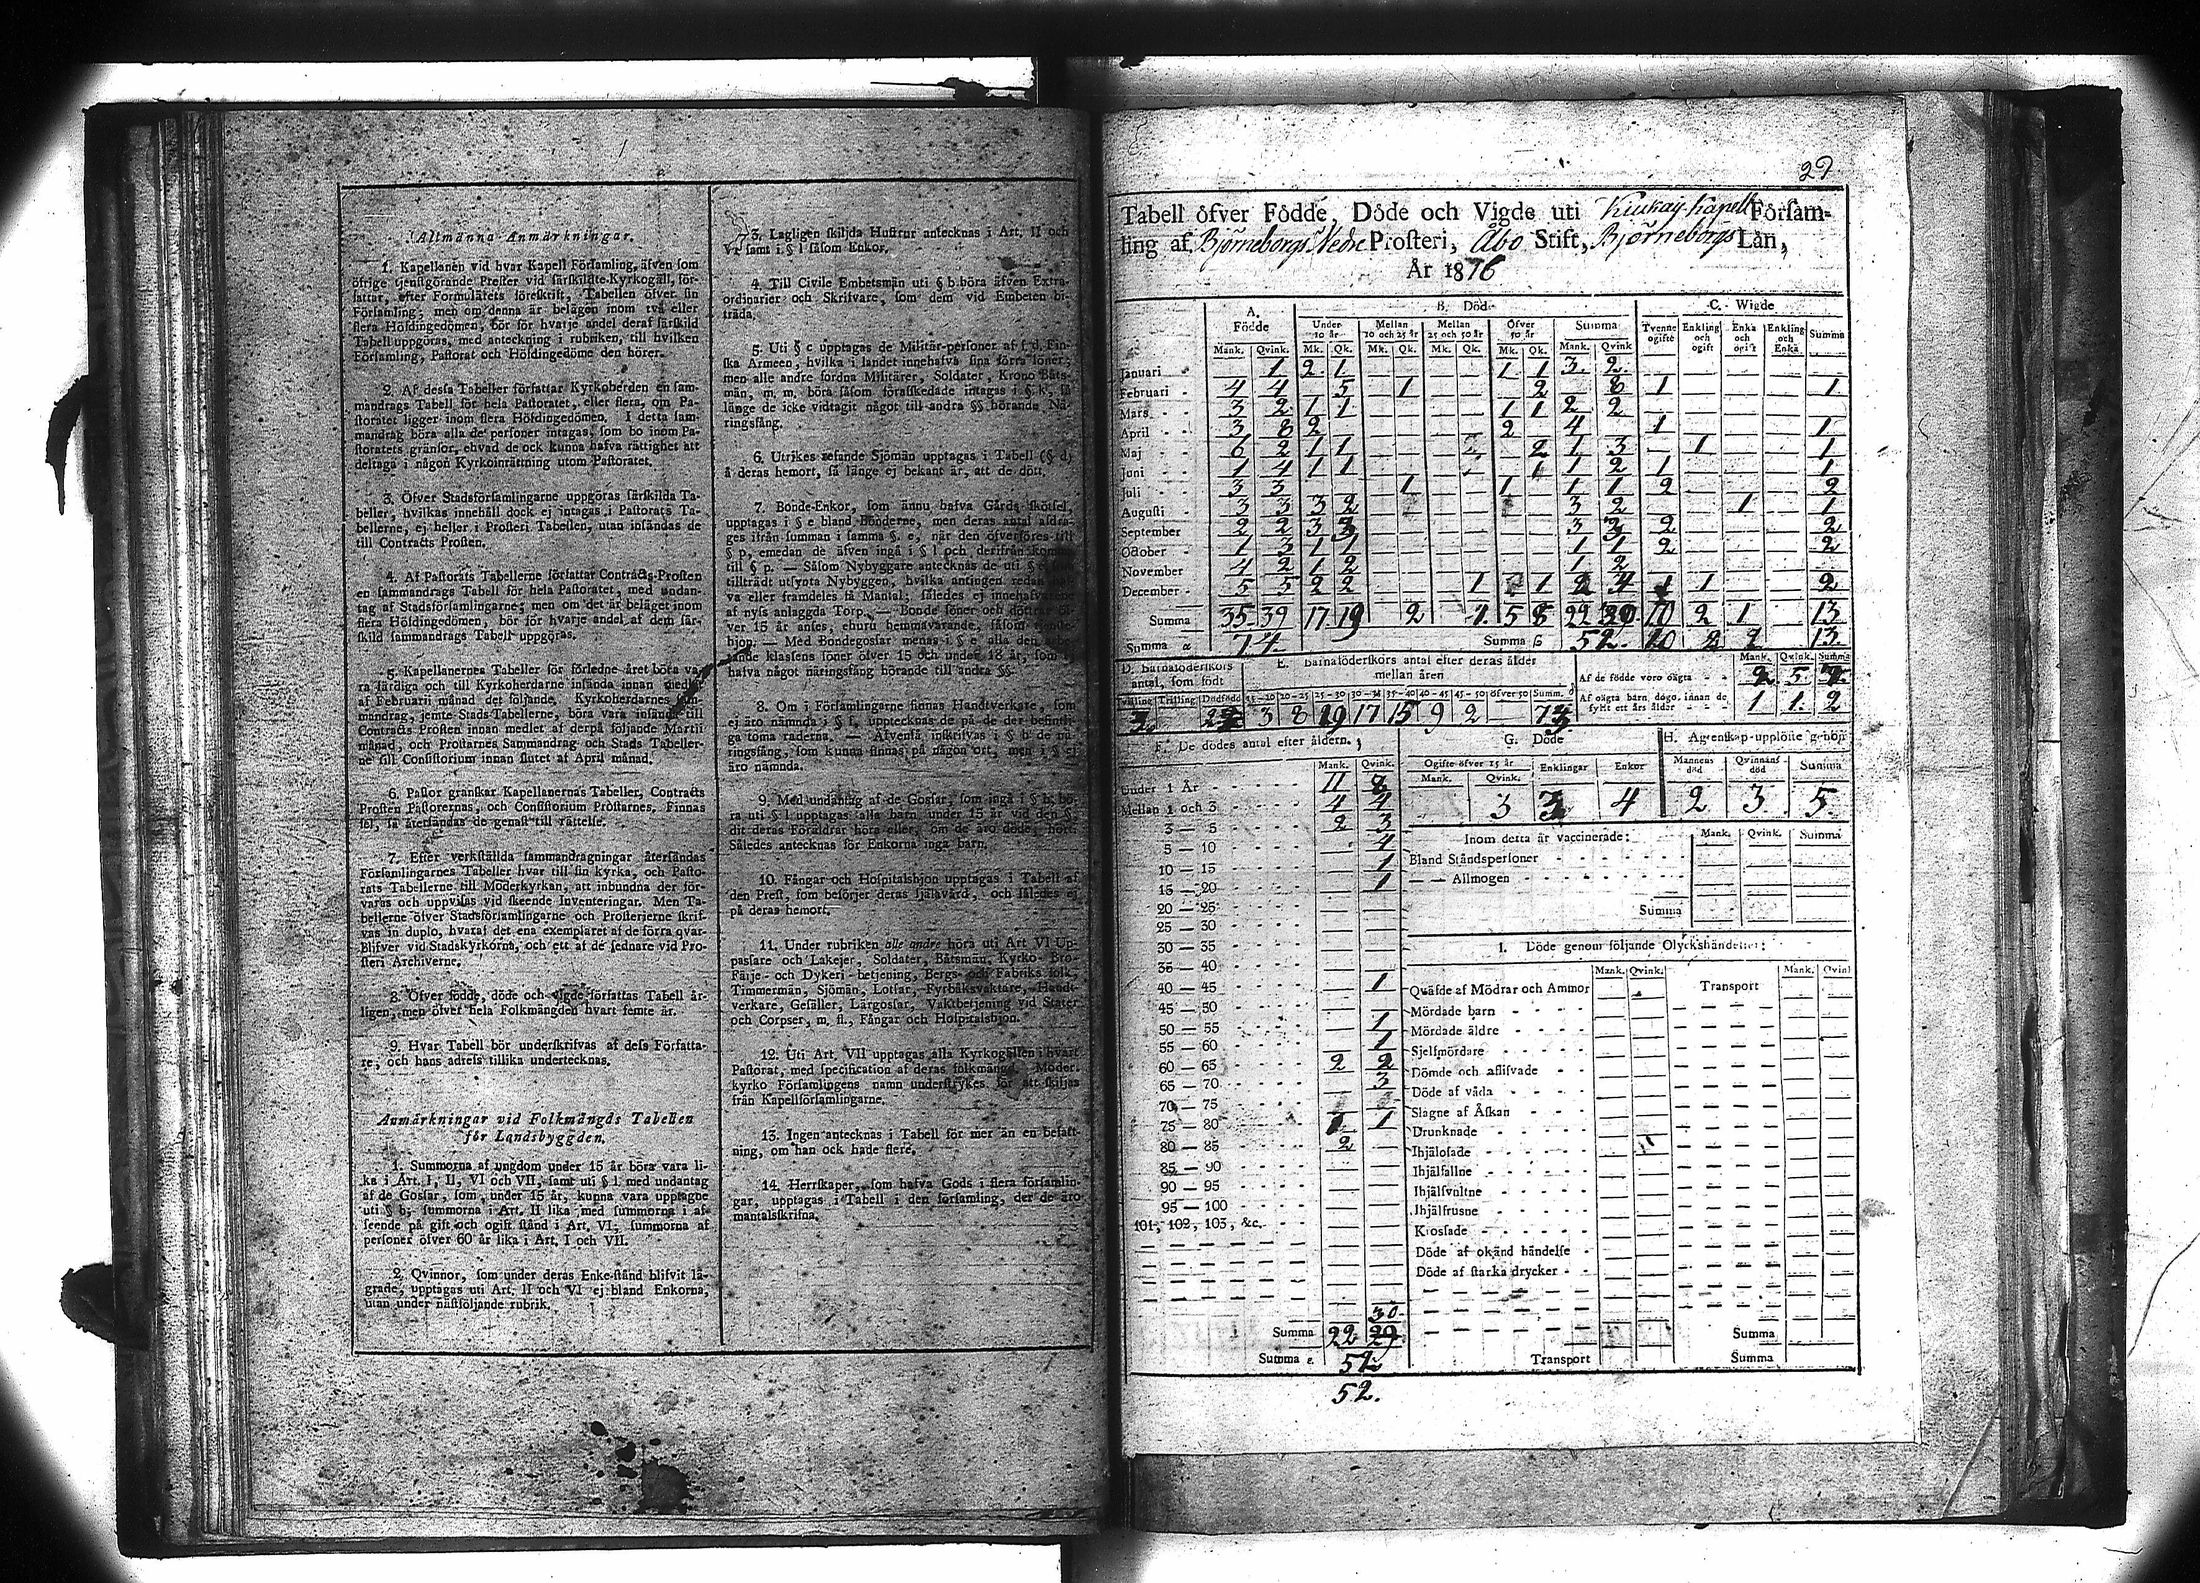 Allmänna Anmärkningar.
1. Kapellanen vid hvar Kapell Församling, äfven som
öfrige tjenstgörande Prester vid särskildte Kyrkogäll, för-
fattar, efter Formulärets föreskrift, Tabellen öfver sin
Församling; men om denna är belägen inom två eller
flera Höfdingedömen, bör för hvarje andel deraf särskild
Tabell uppgöras, med anteckning i rubriken, till hvilken
Församling, Pastorat och Höfdingedöme den hörer.
2. Af dessa Tabeller författar Kyrkoherden en sam-
mandrags Tabell för hela Pastoratet, eller flera, om Pa-
storatet ligger inom flera Höfdingedömen. I detta sam-
mandrag böra alla de personer intagas, som bo inom Pa-
storatets gränsor, ehvad de ock kunna hafva rättighet att
deltaga i någon Kyrkoinrättning utom Pastoratet.
3. Öfver Stadsförsamlingarne uppgöras särskilda Ta-
beller, hvilkas innehåll dock ej intagas i Pastorats Ta-
bellerne, ej heller i Prosteri Tabellen, utan insändas de
till Contracts Prosten.
4. Af Pastorats Tabellerne författar Contracts-Prosten
en sammandrags Tabell för hela Pastoratet, med undan-
tag af Stadsförsamlingarne; men om det är beläget inom
flera Höfdingedömen, bör för hvarje andel af dem sär-
skild sammandrags Tabell uppgöras.
5. Kapellanernes Tabeller för förledne året böra va-
ra färdiga och till Kyrkoherdarne insända innan medlet
af Februarii månad det följande. Kyrkoherdarnes sam-
mandrag, jemte Stads-Tabellerne, böra vara insände till
Contracts Prosten innan medlet af derpå följande Martii
månad, och Prostarnes Sammandrag och Stads Tabeller-
ne till Consistorium innan slutet af April månad.
6. Pastor granskar Kapellanernas Tabeller, Contracts
Prosten Pastorernas, och Consistorium Prostarnes. Finnas
fel, så återsändas de genast till rättelse.
7. Efter verkställda sammandragningar återsändas
Församlingarnes Tabeller hvar till sin kyrka, och Pasto-
rats Tabellerne till Moderkyrkan, att inbundna der för-
varas och uppvisas vid skeende Inventeringar. Men Ta-
bellerne öfver Stadsförsamlingarne och Prosterierne skrif-
vas in duplo, hvaraf det ena exemplaret af de förra qvar-
blifver vid Stadskyrkorna, och ett af de sednare vid Pro-
steri Archiverne.
8. Öfver födde, döde och vigde författas Tabell år-
ligen, men öfver hela Folkmängden hvart femte år.
9. Hvar Tabell bör underskrifvas af dess Författa-
re, och hans adress tillika undertecknas.
Anmärkningar vid Folkmängds Tabellen
för Landsbygden.
1. Summorna af ungdom under 15 år böra vara li-
ka i Art. I, II, VI och VII, samt uti § l med undantag
af de Gossar, som, under 15 år, kunna vara upptagne
uti § b; summorna i Art. II lika med summorna i af-
seende på gift och ogift stånd i Art. VI, summorna af
personer öfver 60 år lika i Art. I och VII.
2. Qvinnor, som under deras Enke-stånd blifvit lä-
grade, upptagas uti Art. II och VI ej bland Enkorna,
utan under nästföljande rubrik.
3. Lagligen skiljda Hustrur antecknas i Art. II och
VI samt i § l såsom Enkor.
4. Till Civile Embetsmän uti § b böra äfven Extra-
ordinarier och Skrifvare, som dem vid Embeten bi-
träda.
5. Uti § c upptagas de Militär-personer af f. d. Fin-
ska Armeen, hvilka i landet innehafva sina förra löner;
men alle andre fordna Militärer, Soldater, Krono Båts-
män, m. m. böra såsom förafskedade intagas i § k, så
länge de icke vidtagit något till andra §§ hörande Nä-
ringsfång.
6. Utrikes resande Sjömän upptagas i Tabell (§ d)
å deras hemort, så länge ej bekant är, att de dött.
7. Bonde-Enkor, som ännu hafva Gårds skötsel,
upptagas i § e bland Bönderne, men deras antal afdra-
ges ifrån summan i samma §. e, när den öfverföres till
§ p, emedan de äfven ingå i § l och derifrån komma
till § p. — Såsom Nybyggare antecknas de uti § e som
tillträdt utsynta Nybyggen, hvilka antingen redan haf-
va eller framdeles få Mantal; således ej innehafvarene
af nyss anlaggda Torp. — Bonde söner och döttrar öf-
ver 15 år anses, ehuru hemmavarande, såsom tjenste-
hjon. — Med Bondegossar menas i § e alla den arbe-
tande klassens söner öfver 15 och under 18 år, som ej
hafva något näringsfång hörande till andra §§.
8. Om i Församlingarne finnas Handtverkare, som
ej äro nämnda i § f, uppteeknas de på de der befintli-
ga toma raderna. — Äfvenså inskrifvas i § h de nä-
ringsfång, som kunna finnas på någon ort, men i § ej
äro nämnda.
9. Med undantag af de Gossar, som ingå i § b, bö-
ra uti § l upptagas alla barn under 15 år vid den §,
dit deras Föräldrar höra eller, om de äro döde, hört.
Således antecknas för Enkorna inga barn.
10. Fångar och Hospitalshjon upptagas i Tabell af
den Prest, som besörjer deras själavård, och således ej
på deras hemort.
11. Under rubriken alle andre höra uti Art VI Up-
passare och Lakejer, Soldater, Båtsmän, Kyrko- Bro-
Färje- och Dykeri-betjening, Bergs- och Fabriks folk,
Timmermän, Sjömän, Lotsar, Fyrbåksvaktare, Handt-
verkare, Gesäller, Lärgossar, Vaktbetjening vid Stater
och Corpser, m. fl., Fångar och Hospitalshjon.
12. Uti Art. VII upptagas alla Kyrkogällen i hvart
Pastorat, med specification af deras folkmängd. Moder-
kyrko Församlingens namn understrykes för att skiljas
från Kapellförsamlingarne.
13. Ingen antecknas i Tabell för mer än en befatt-
ning, om han ock hade flere.
14. Herrskaper, som hafva Gods i flera församlin-
gar, upptagas i Tabell i den församling, der de äro
mantalsskrifna.
29
Tabell öfver Födde, Döde och Vigde uti Kiukais Kapell Försam-
ling af Björneborgs Nedre Prosteri, Åbo Stift, Björneborgs Län,
År 1816
A. Födde B. Döde C. Wigde
Under 10 år Mellan 10 och 25 år Mellan 25 och 50 år Öfver 50 år Summa Tvenne ogifte Enkling och ogift Enka och ogift Enkling och Enka Summa
Mank. Qvink. Mk. Qk. Mk. Qk. Mk. Qk. Mk. Qk. Mank. Qvink
Januari — 1 2 1 — — — — 1 1 3 2 — — — — —
Februari 4 4 — 5 — 1 — — — 2 — 8 1 — — — 1
Mars 3 2 1 1 — — — — 1 1 2 2 — — — — —
April 3 8 2 — — — — — 2 — 4 — 1 — — — 1
Maj 6 2 1 1 — — — — — 2 1 3 — 1 — — 1
Juni 1 4 1 1 — — — — — 1 1 2 1 — — — 1
Juli 3 3 — — — 1 — — 1 — 1 1 2 — — — 2
Augusti 3 3 3 2 — — — — — — 3 2 — — 1 — 1
September 2 2 3 3 — — — — — — 3 3 2 — — — 2
October 1 3 1 1 — — — — — — 1 1 2 — — — 2
November 4 2 1 2 — — — — — — 1 2 — — — — —
December 5 5 2 2 — — — 1 — 1 2 4 1 1 — — 2
Summa 35 39 17 19 — 2 — 1 5 8 22 30 10 2 1 — 13
Summa α 74. Summa ß 52. 10 2 13.
D. Barnaföderskors antal, som födt
E. Barnaföderskors antal efter deras ålder mellan åren
Mank. Qvink. Summa
Af de födde voro oägta 2 5 7
Af oägta barn, dögo, innan de fyllt ett års ålder 1 1 2
Tvilling Trilling Dödfödd 15-20 20-25 25-30 30-34 35-40 40-45 45-50 öfver 50 Summ.
3 8 19 17 15 9 2 — 73
F. De dödes antal efter åldern.
Mank. Qvink.
Under 1 År 11 8
Mellan 1 och 3 4 4
3 — 5 2 3
5 — 10 — 4
10 — 15 — 1
15 — 20 — 1
20 — 25 — —
25 — 30 — —
30 — 35 — —
35 — 40 — —
40 — 45 — 1
45 — 50 — —
50 — 55 — 1
55 — 60 — 1
60 — 65 2 2
65 — 70 — 3
70 — 75
75 — 80 1 1
80 — 85 2 —
85 — 90 — —
90 — 95 — —
95 — 100 — —
101, 102, 103, &c. — —
30.
Summa 22 29
Summa ε. 51
52.
G. Döde
Ogifte öfver 15 år Enklingar Enkor
Mank. Qvink.
3 3 4
H. Ägtenskap upplöste genom
Mannens död Qvinnans död Summa
2 3 5
Inom detta år vaccinerade: Mank. Qvink. Summa
Bland Ståndspersoner — — —
— — Allmogen — — —
Summa — — —
I. Döde genom följande Olyckshändelser:
Mank. Qvink. Transport Mank. Qvink
Qväfde af Mödrar och Ammor
Mördade barn
Mördade äldre
Sjelfmördare
Dömde och aflifvade
Döde af våda
Slagne af Åskan
Drunknade
Ihjälosade
Ihjälfallne
Ihjälsvultne
Ihjälfrusne
Krossade
Döde af okänd händelse
Döde af starka drycker
Summa
Transport Summa